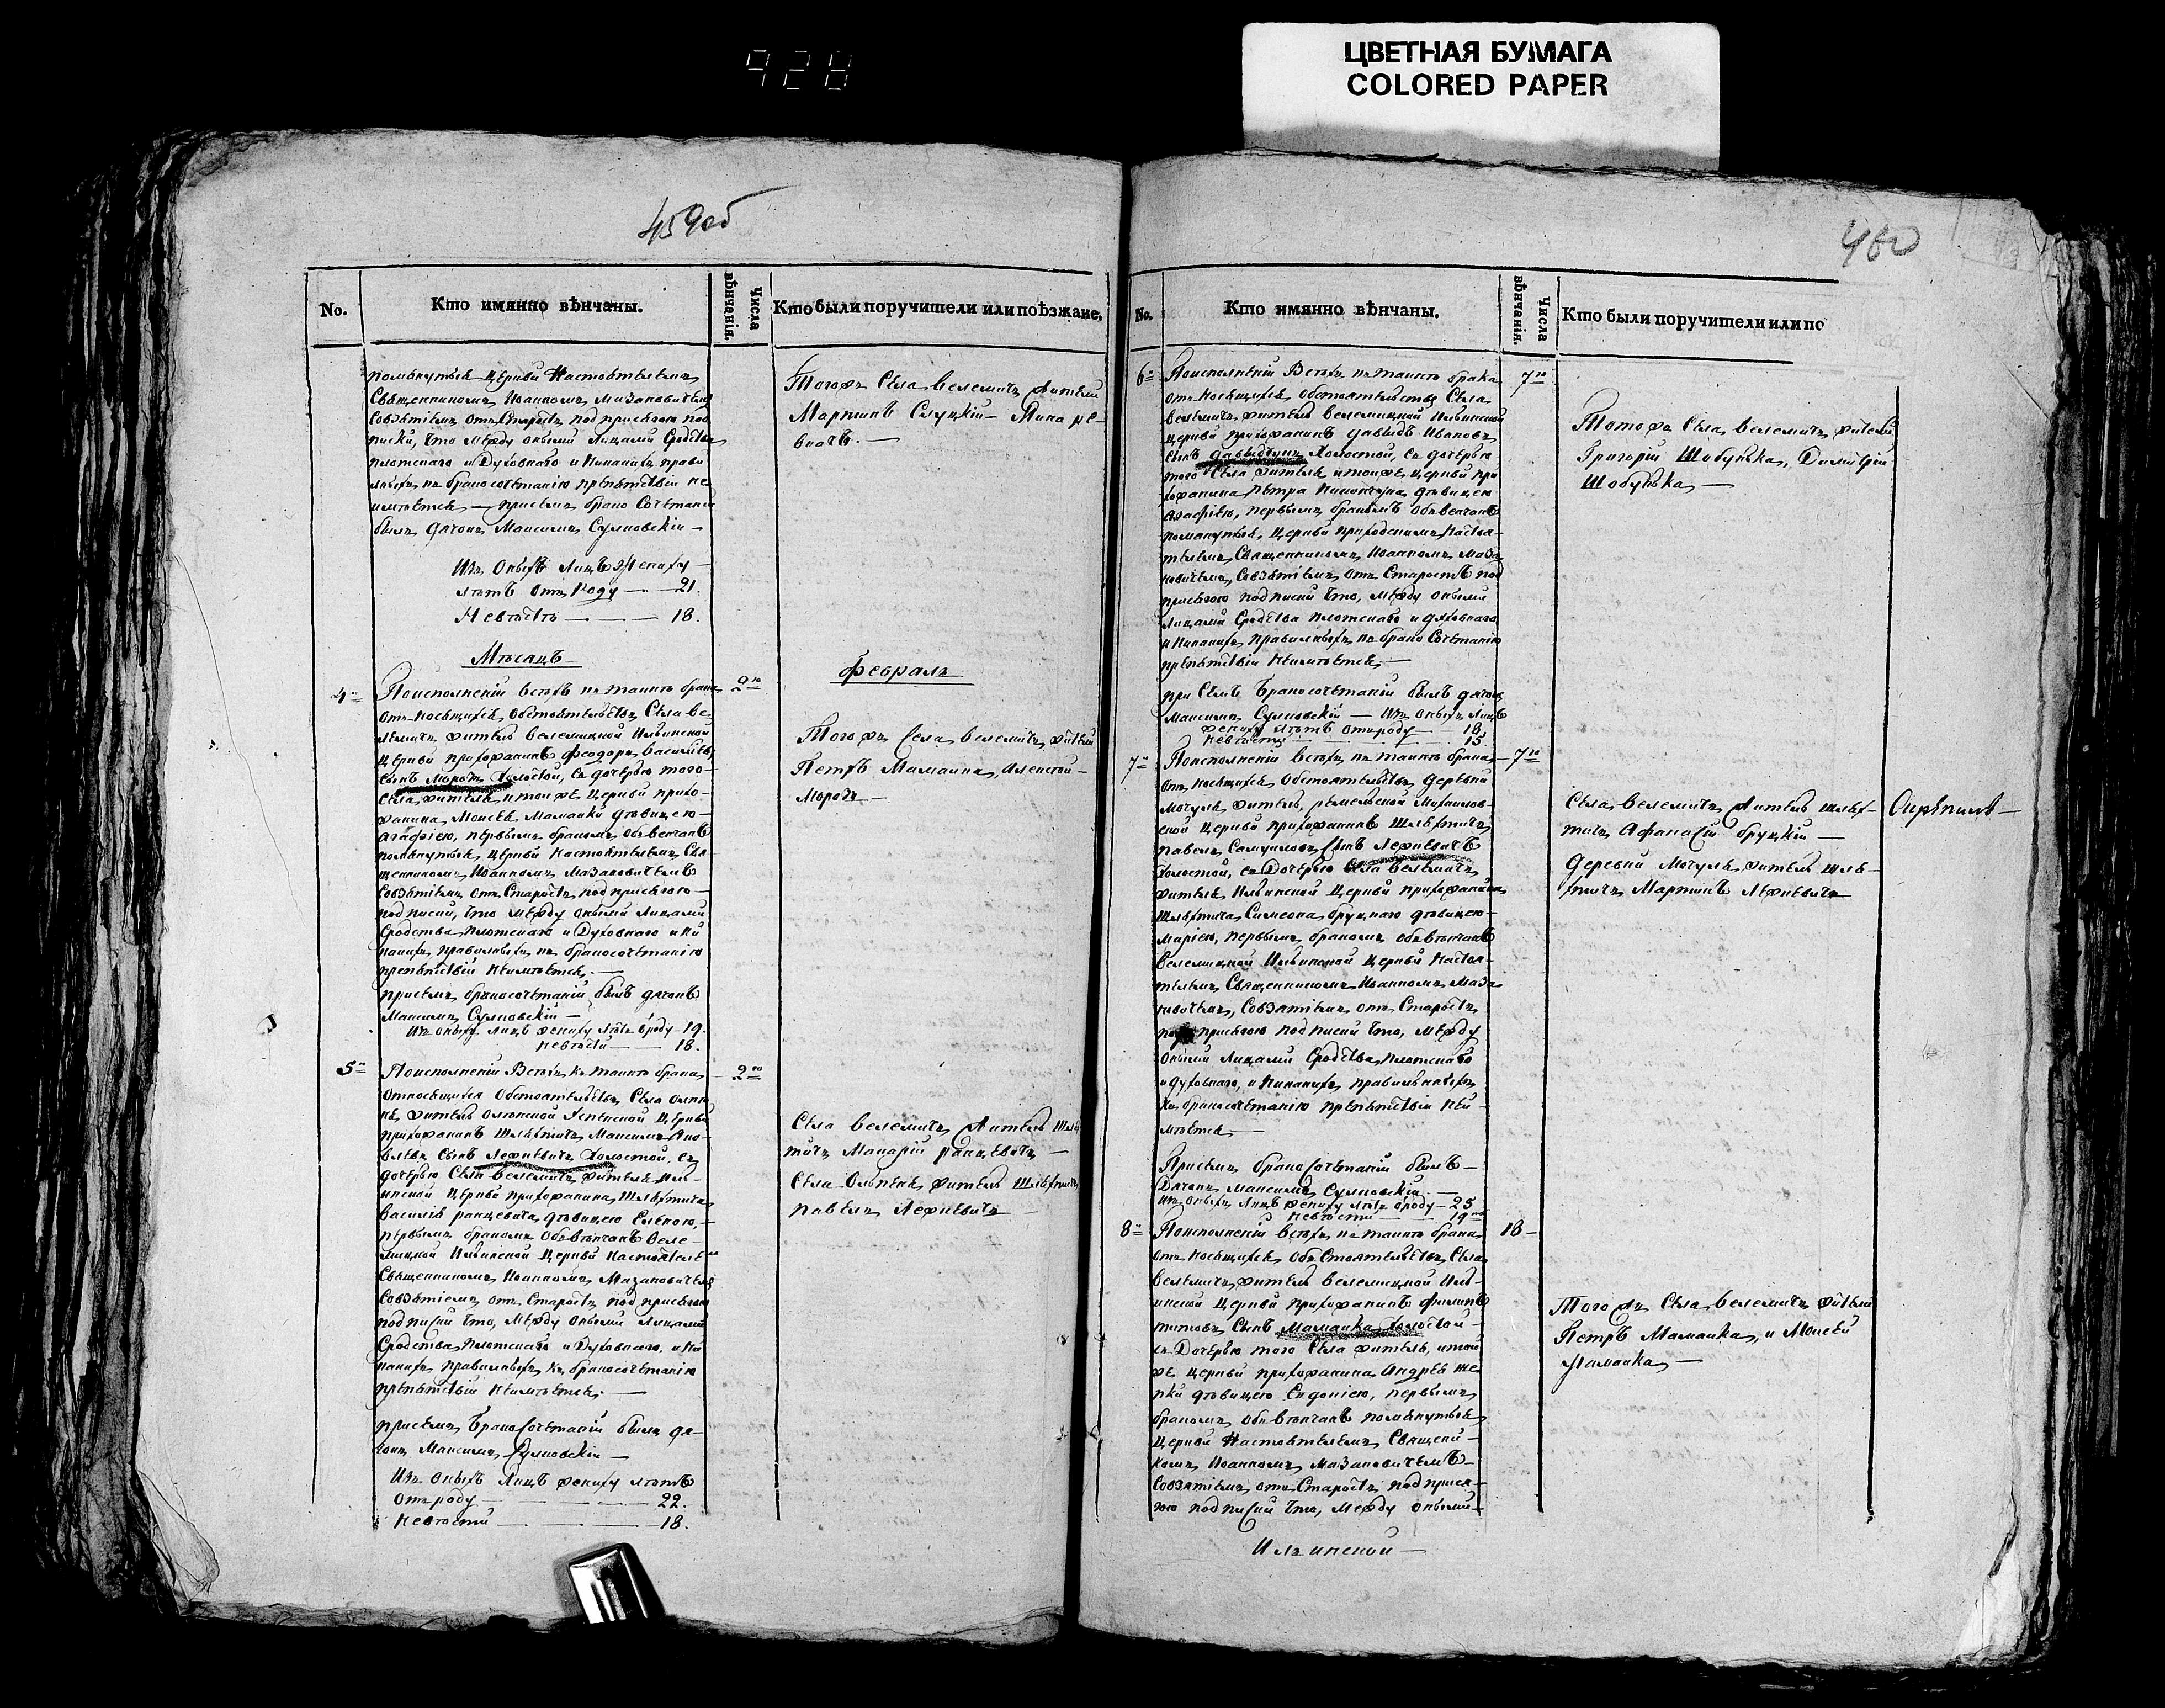 928
ЦВЕТНАЯ БУМАГА
COLORED PAPER
459об
No.
Кто имянно вѣнчаны.
Числа вѣнчанія.
Кто были поручители или поѣзжане.
помянутыя Церкви Настоятелемъ
Священникомъ Иоанномъ Мазановичемъ
Совзятіемъ отъ Старостъ под присягою под
писки, что между оными лицами Сродства
плотскаго и Духовнаго и никакихъ прави
льныхъ къ бракосочетанію препятствій не
имѣется — присемъ брако Сочетаніи
былъ дячокъ Максимъ Сулковскій —
Изъ оныхъ лицъ Жениху —
лѣтъ отъ Роду — 21.
Невѣстѣ — 18.
Тогожъ Села Велемичъ жители
Мартинъ Слуцкій
Мѣсяцъ
февраль
4
Поисполненій всѣхъ къ таинтѣ брака
относящихся обстоятельствъ Села Ве
лемичъ житель велемицкой Ильинской
Церкви прихожанинъ Феодоръ васильевъ
сынъ Морозъ Холостой, съ дочерью того
Села жителя итой же Церкви прихо
жанина Моисея Мамайки дѣвицею
Агафіею, первымъ бракомъ обвенчанъ
помянутыя Церкви Настоятелемъ Свя
щенникомъ Иоанномъ Мазановичемъ
Совзятіемъ отъ Старостъ подприсягою
подписки, что Между оными лицами
Сродства плотскаго и Духовнаго и ни
какихъ правильныхъ къ бракосочетанію
препятствій неимѣется. —
присемъ бракосочетаній былъ дячокъ
Максимъ Сулковскій —
Изъ оныхъ лицъ жениху лѣтъ ѿроду 19.
невѣсти — 18.
2го
Тогожъ Села велемичъ жители
Петръ Мамайка, Алексѣй
Морозъ —
5
Поисполненій Всѣхъ къ таинтѣ брака
Относящихся Обстоятельствъ Села Олпѣ
нѣ, житель олпѣнской Успенской Церкви
прихожанинъ Шляхтичъ Максимъ Яко
влевъ Сынъ Лехневичъ Холостой, съ
дочерью Села велемичъ жителя Иль
инской Церкви прихожанина Шляхтича
Василія ранцевича дѣвицею Еленою,
первымъ бракомъ Обвѣнчанъ Веле
мицкой Ильинской Церкви Настоятелемъ
Священникомъ Иоанномъ Мазановичемъ
Совзятіемъ отъ Старостъ под присягою
подписки что, Между Оными лицами
Сродства плотскаго и Духовнаго, и ни
какихъ правильныхъ къ бракосочетанію
препятствій неимѣется. —
присемъ БракоСочетаній былъ дя
чокъ Максимъ Сулковскій —
Изъ оныхъ лицъ жениху лѣтъ
отъ роду — 22.
Невѣсти — 18.
2го
Села велемичъ житель Шлях
тичъ Макарій ранцевичъ —
Села Ольпенъ житель Шляхтичъ
павелъ Лехневичъ
460
No.
Кто имянно вѣнчаны.
Числа вѣнчанія.
Кто были поручители или по
6
Поисполненій Всѣхъ къ таинтѣ брака
относящихся обстоятельствъ Села
велемичъ житель велемицкой Ильинской
Церкви прихожанинъ давыдъ Ивановъ
сынъ Холостой, съ дочерью
того Села жителя итойже Церкви при
хожанина Петра дѣвицею
Агафіею, первымъ бракомъ Обвенчанъ
помянутыя Церкви приходскимъ настоя
телемъ Священникомъ Иоанномъ Маза
новичемъ, Совзятіемъ отъ Старостъ под
присягою подписки что, Между оными
лицами Сродства плотскаго и духовнаго
и никакихъ правильныхъ къ брако Сочетанію
препятствій неимѣется. —
при Семъ Бракосочетаній былъ дячокъ
Максимъ Сулковскій — Изъ оныхъ лицъ
жениху лѣтъ отъроду — 18.
невѣсти — 15.
7го
Тотожъ Села велемичъ жители
Григорій Шобунька, Димитрій
Шобунька —
7
Поисполненій всѣхъ къ таинтѣ брака
относящихся Обстоятельствъ деревни
Могуль житель, ремельской Михайлов
ской Церкви прихожанинъ Шляхтичъ
павелъ Самуиловъ Сынъ Лехневичъ
Холостой, съ Дочерью Села велемичъ
жителя Ильинской Церкви прихожанина
Шляхтича Симеона бруцкаго дѣвицею
Маріею, первымъ бракомъ обвѣнчанъ
Велемицкой Ильинской Церкви Настоя
телемъ Священникомъ Иоанномъ Маза
новичемъ, Совзятіемъ отъ Старостъ
под присягою подписки что, Между
Оными лицами Сродства плотскаго
и духовнаго, и никакихъ правильныхъ
къ бракосочетанію препятствій неи
мѣется —
Присемъ бракоСочетаній былъ —
Дячокъ Максимъ Сулковскій —
Изъ оныхъ лицъ жениху лѣтъ ѿроду — 25
невѣсти — 19
7го
Села велемичъ житель шлях
тичъ Афанасій бруцкій —
деревни Могуль житель шля
хтичъ Мартинъ Лехневичъ
8
Поисполненій всѣхъ къ таинтѣ брака
относящихся обСтоятельствъ Села
велемичъ житель велемицкой Иль
инской Церкви прихожанинъ Филипъ
титовъ Сынъ Мамайка Холостой
съ Дочерью того Села жителя, итой
же Церкви прихожанина Андрея Ше
пки дѣвицею Евдокіею, первымъ
бракомъ Обвѣнчанъ помянутыя
Церкви Настоятелемъ Священи
комъ Иоанномъ Мазановичемъ
Совзятіемъ отъ Старостъ подприся
гою подписки что, Между оными
18
Того жъ Села велемичъ жители
Петръ Мамайка, и Моисей
Мамайка —
Ильинской —